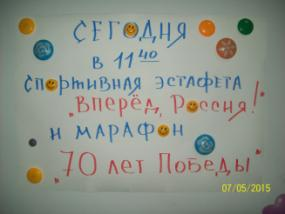 СЕГОДНЯ
В 11 40
СПОРТИВНАЯ ЭСТАФЕТА
„ВПЕРЁД, РОССИЯ!"
И МАРАФОН
„70 ЛЕТ ПОБЕДЫ"
07/05/2015